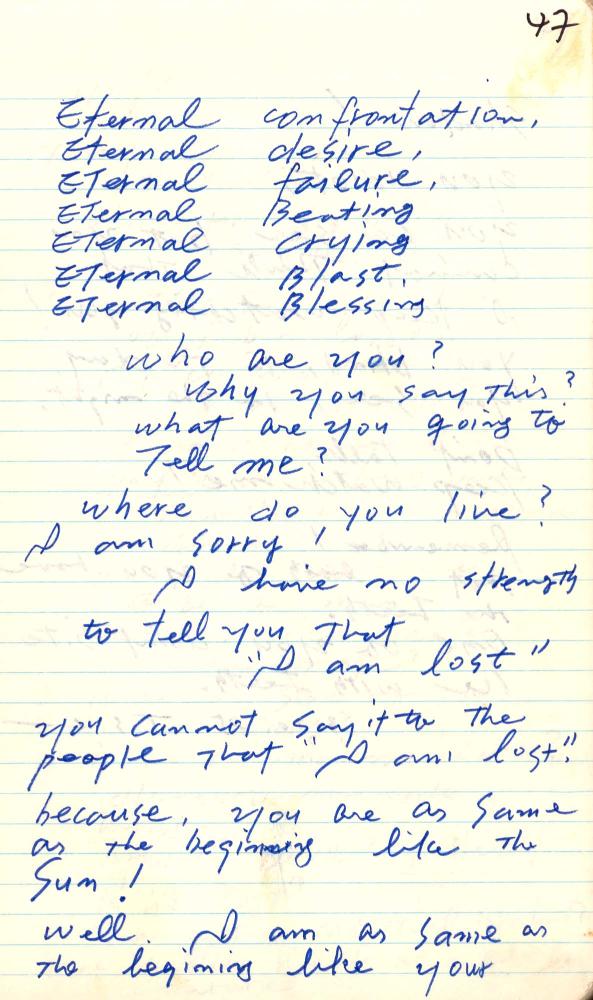 47
Eternal confrontation,
Eternal desire,
ETernal failure,
ETernal Beating
ETernal Crying
ETernal Blast,
ETernal Blessing
who are you?
Why you say this?
what are you going to
Tell me?
where do you live?
I am sorry!
I have no strength
to tell you That
"I am lost"
you cannot say it to the
people that "I am lost".
because, you are as same
as the beginning like the
Sun!
well. I am as same as
the begining like your